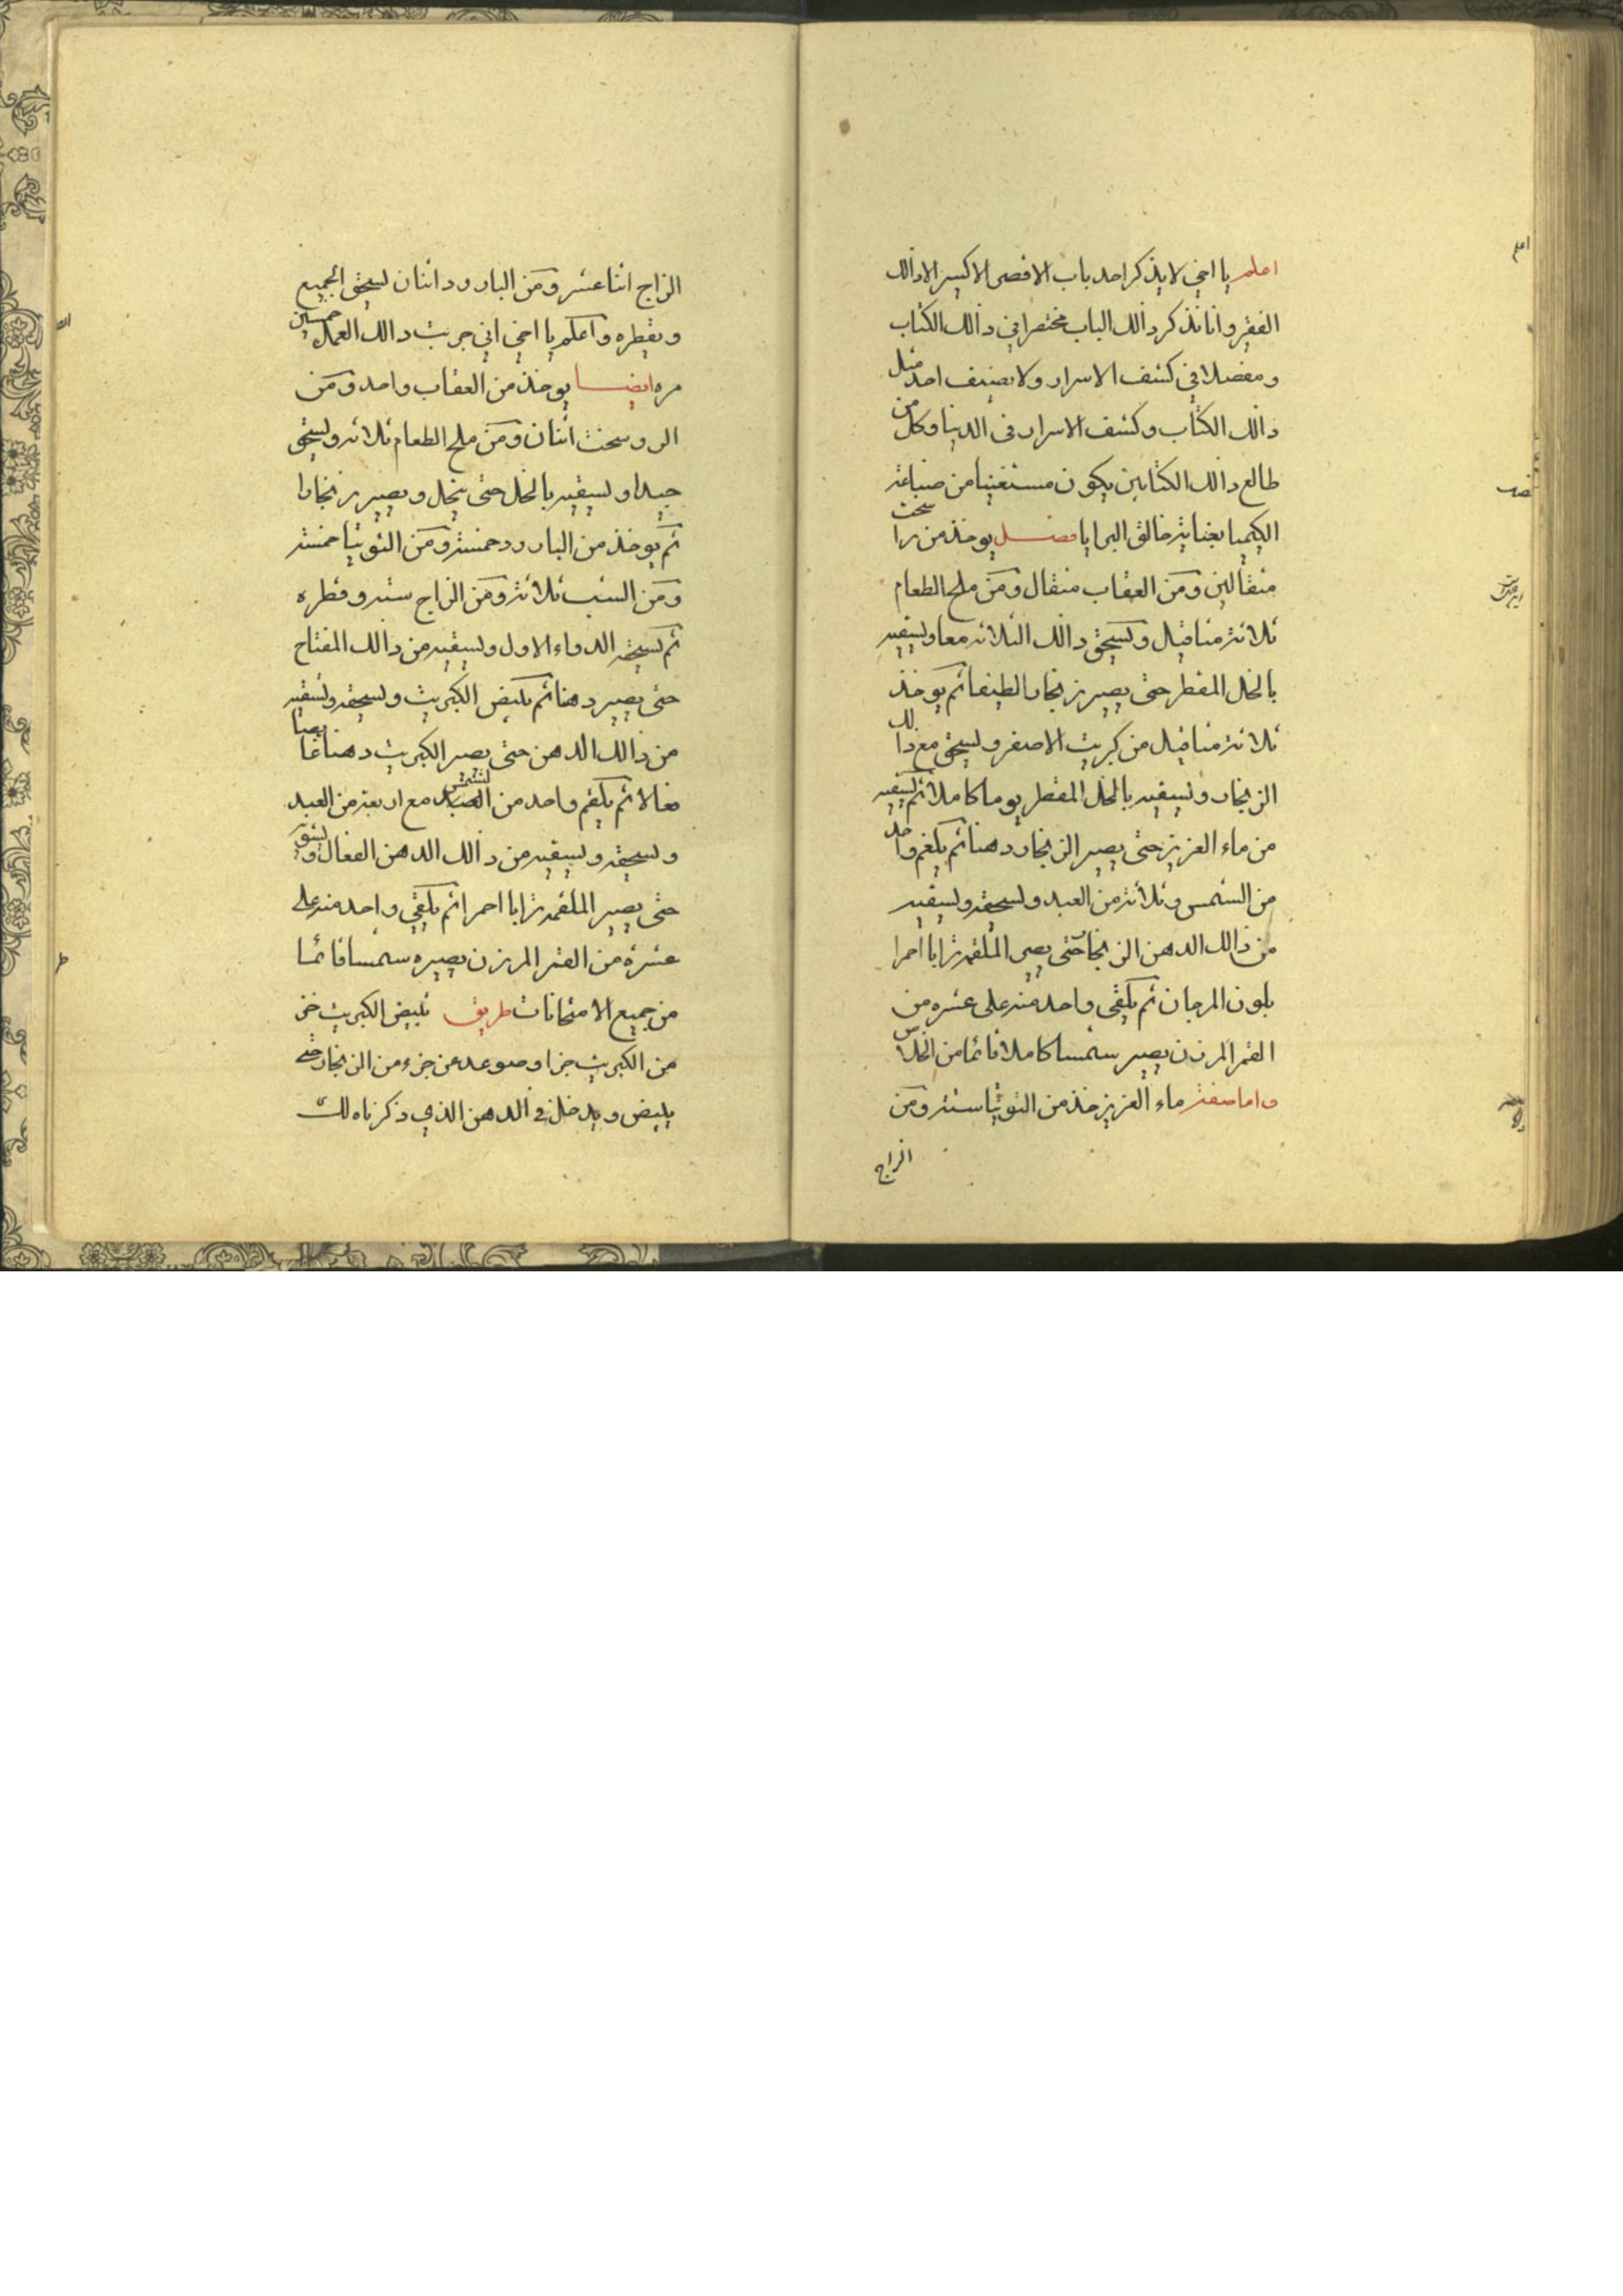 اعلم يا اخي لا يذكر احد باب الاقصى الاكسير الا ذالك
الفقير وانا نذكر ذالك الباب مختصرا في ذالك الكتاب
ومفصلا في كشف الاسرار ولا يصنف احد مثل
ذالك الكتاب وكشف الاسرار في الدنيا وكل من
طالع ذالك الكتابين يكون مستغنيا من صناعة
الكيميا بعناية خالق البرايا فصل يوخذ من راسخت
مثقالين ومن العقاب مثقال ومن ملح الطعام
ثلاثة مثاقيل ويسحق ذالك الثلاثة معا ويسقيه
بالخل المقطر حتى يصير زنجارا لطيفا ثم يوخذ
ثلاثة مثاقيل من كبريت الاصفر ويسحق مع ذالك
الزنجار ويسقيه بالخل المقطر يوما كاملا ثم يسقيه
من ماء العزيز حتى يصير الزنجار دهنا ثم يلغم واحد
من الشمس وثلاثة من العبد ويسحقه ويسقيه
من ذالك الدهن الزنجار حتى يصير الملقمه ترابا احمرا
بلون المرجان ثم يلقى واحد منه على عشره من
القمر المرزن يصير شمسا كاملا قائما من الخلاص
واما صفة ماء العزيز خذ من التوتيا ستة ومن
الزاج
الزاج اثنا عشر ومن البارود اثنان يسحق الجميع
ويقطره واعلم يا اخي اني جربت ذالك العمل خمسين
مره ايضا يوخذ من العقاب واحد ومن
الروسخت اثنان ومن ملح الطعام ثلاثه ويسحق
جيدا ويسقيه بالخل حتى ينحل ويصير زنجارا
ثم يوخذ من البارود خمسة ومن التوتيا خمسة
ومن الشب ثلاثة ومن الزاج ستة وقطره
ثم يسحقه الدواء الاول ويسقيه من ذالك المفتاح
حتى يصير دهنا ثم يبيض الكبريت ويسحقه ويسقيه
من ذالك الدهن حتى يصير الكبريت دهنا
فعالا ثم يلقم واحد من الشمس مع اربعة من العبد
ويسحقه ويسقيه من ذالك الدهن الفعال
حتى يصير الملقمه ترابا احمرا ثم يلقي واحد منه على
عشرة من القمر المرزن يصيره شمسا قائما
من جميع الامتحانات طريق تبيض الكبريت خذ
من الكبريت جزا وصوعده عن جزء من الزنجار حتى
يبيض ويدخل في الدهن الذي ذكرناه لك